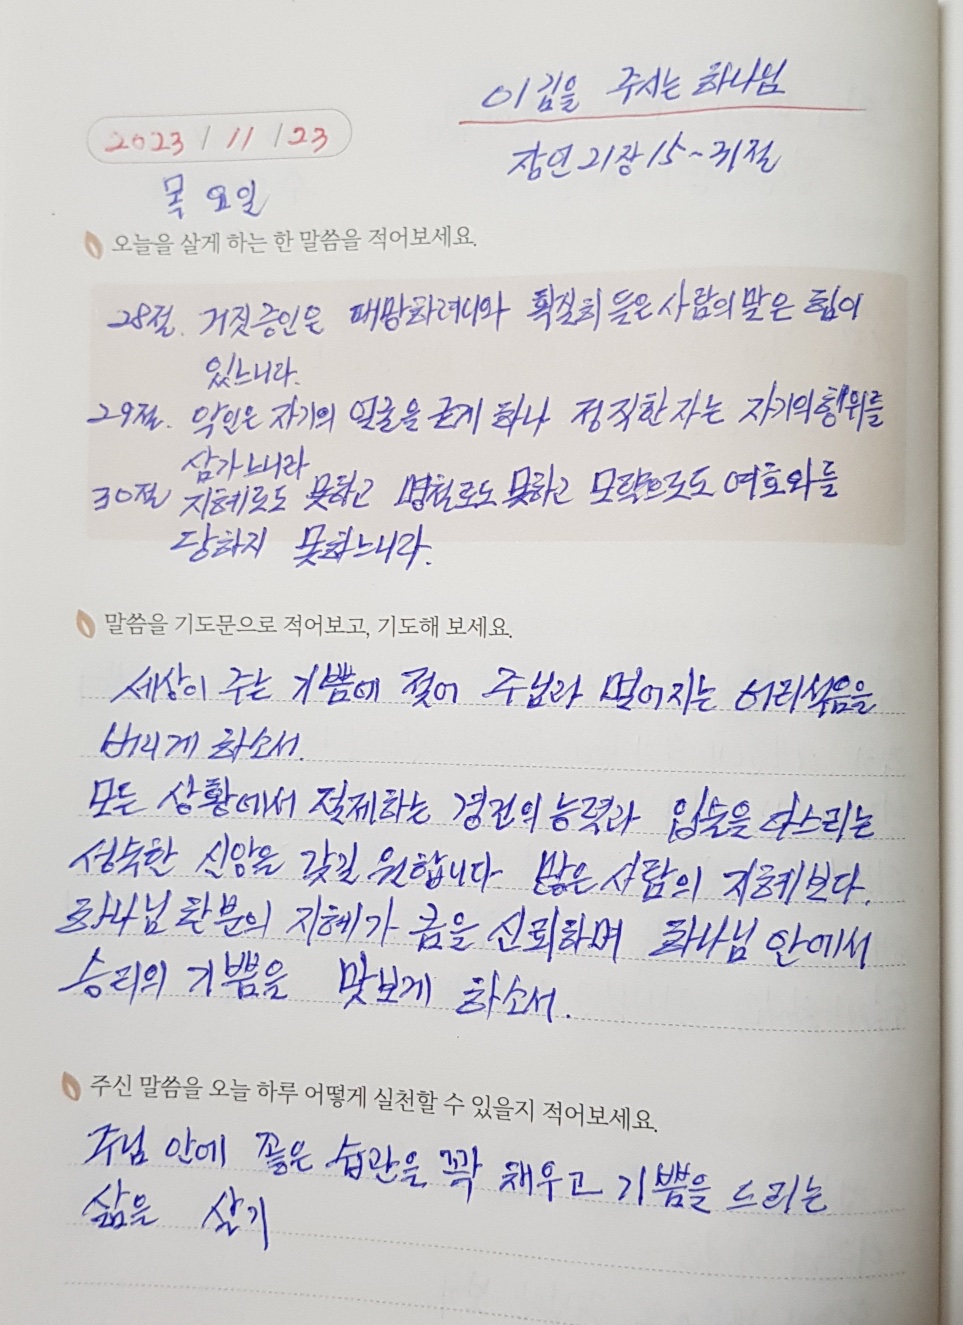 이김을 주시는 하나님
2023 / 11 / 23
잠언 21장 15~31절
목요일
오늘을 살게 하는 한 말씀을 적어보세요.
28절. 거짓증인은 패망하려니와 확실히 들은 사람의 말은 힘이
있느니라.
29절. 악인은 자기의 얼굴을 굳게 하나 정직한 자는 자기의 행위를
삼가느니라
30절 지혜로도 못하고 명철로도 못하고 모략으로도 여호와를
당하지 못하느니라.
말씀을 기도문으로 적어보고, 기도해 보세요.
세상이 주는 기쁨에 젖어 주님과 멀어지는 어리석음을
버리게 하소서.
모든 상황에서 절제하는 경건의 능력과 입술을 다스리는
성숙한 신앙을 갖길 원합니다. 많은 사람의 지혜보다.
하나님 한 분의 지혜가 큼을 신뢰하며 하나님 안에서
승리의 기쁨을 맛보게 하소서.
주신 말씀을 오늘 하루 어떻게 실천할 수 있을지 적어보세요.
주님 안에 좋은 습관을 꽉 채우고 기쁨을 드리는
삶을 살기